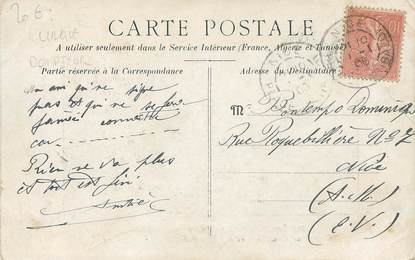 20 €
CARTE POSTALE
A utiliser seulement dans le Service Intérieur (France, Algérie et Tunisie)
Partie réservée à la Correspondance
Adresse du Destinataire
un ami qui ne signe
pas et qui ne se fera
jamais connaître
car
Rien ne va plus
et tout est fini
M Bontempo Dominique
Rue Roquebillière No 7
Nice
(A.M.)
(E.V.)